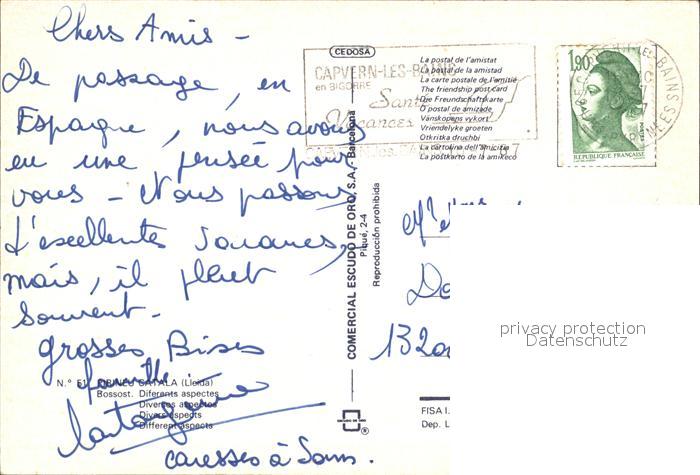 Chers Amis -
De passage, en
Espagne, nous avons
eu une pensée pour
vous - Nous passons
d'excellentes
mais, il pleut
souvent -
grosses Bises
famille
caresses à Sam.
N.° 51 PIRINEU CATALA (Lleida)
Bossost. Diferents aspectes
Diversos aspectos
Divers aspects
Different aspects
CEDOSA
La postal de l'amistat
La postal de la amistad
La carte postale de l'amitié
The friendship post card
Die Freundschaftskarte
O postal de amizade
Vänskopens vykort
Vriendelyke groeten
Otkritka druchbi
La cartolina dell'amicizia
La postkarto de la amikeco
CAPVERN-LES-BAINS
en BIGORRE
Santé
Vacances
COMERCIAL ESCUDO DE ORO, S.A. - Barcelona
Piqué, 2-4
Reproducción prohibida
1,90
REPUBLIQUE FRANÇAISE
1320
privacy protection
Datenschutz
FISA I.
Dep. L